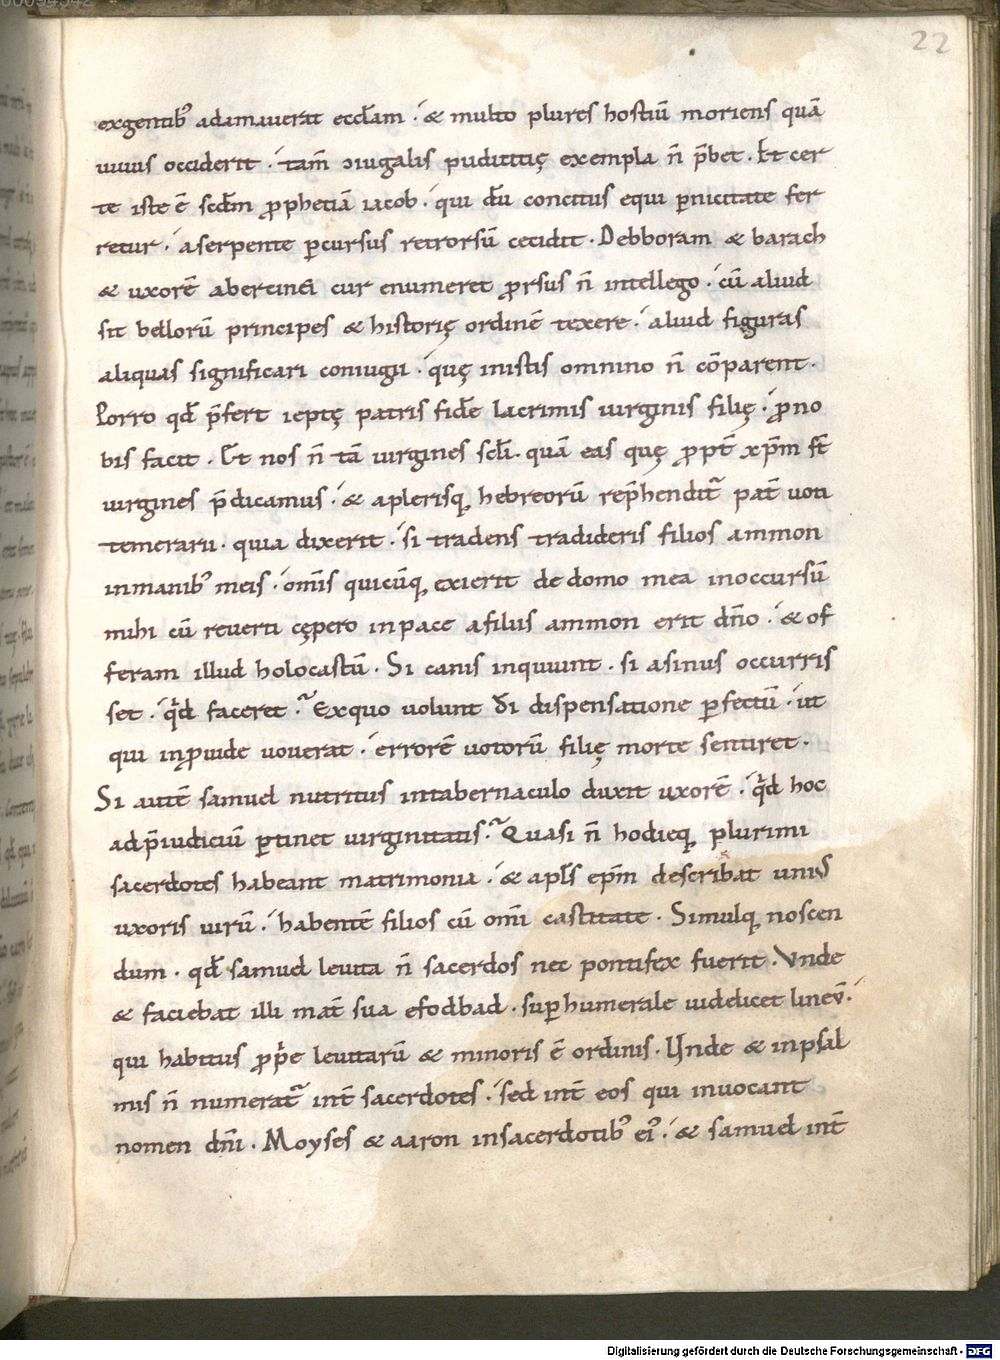 22
exgentib᾽ adamauerit eccl̅am · & multo plures hostiū moriens quā
uiuus occiderit · tam̄ ↄiugalis pudicitię exempla n̄ p̄bet · Et cer
te iste ē scd̅m ꝓphetiā iacob · qui dū concitus equi ꝑnicitate fer
retur · aserpente ꝑcursus retrorsū cecidit · Debboram & barach
& uxorē abercinei cur enumeret ꝓrsus n̄ intellego · cū aliud
sit bellorū principes & historię ordinē texere · aliud figuras
aliquas significari coniugii · quę inistis omnino n̄ cōparent ·
Porro qd̅ p̄fert ieptę patris fidē lacrimis uirginis filię · ꝓno
bis facit · Et nos n̄ tā uirgines scl̅i · quā eas quę ꝓpt̄ xp̅m st̄
uirgines p̄dicamus · & aplerisq; hebreorū rep̄hendit᷑ pat̄ uoti
temerarii · quia dixerit · si tradens tradideris filios ammon
inmanib᾽ meis · om̄is quicūq; exierit de domo mea inoccursū
mihi cū reuerti cępero inpace afiliis ammon erit dn̅o · & of
feram illud holocastū · Si canis inquiunt · si asinus occurris
set · qͥd faceret · Exquo uolunt d̅i dispensatione ꝑfectū · ut
qui inꝓuide uouerat · errorē uotorū filię morte sentiret ·
Si autē samuel nutritus intabernaculo duxit uxorē · qͥd hoc
adp̄iudiciū ꝑtinet uirginitatis · Quasi n̄ hodieq; plurimi
sacerdotes habeant matrimonia · & apl̅s ep̅m describat unius
uxoris uirū · habentē filios cū om̄i castitate · Simulq; noscen
dum · qd̅ samuel leuita n̄ sacerdos nec pontifex fuerit · Vnde
& faciebat illi mat̄ sua efodbad · suꝑhumerale uidelicet lineū ·
qui habitus ꝓpͥe leuitarū & minoris ē ordinis · Unde & inpsal
mis n̄ numerat᷑ int̄ sacerdotes · sed int̄ eos qui inuocant
nomen dn̅i · Moyses & aaron insacerdotib᾽ ei᾽ · & samuel int̄
Digitalisierung gefördert durch die Deutsche Forschungsgemeinschaft - DFG